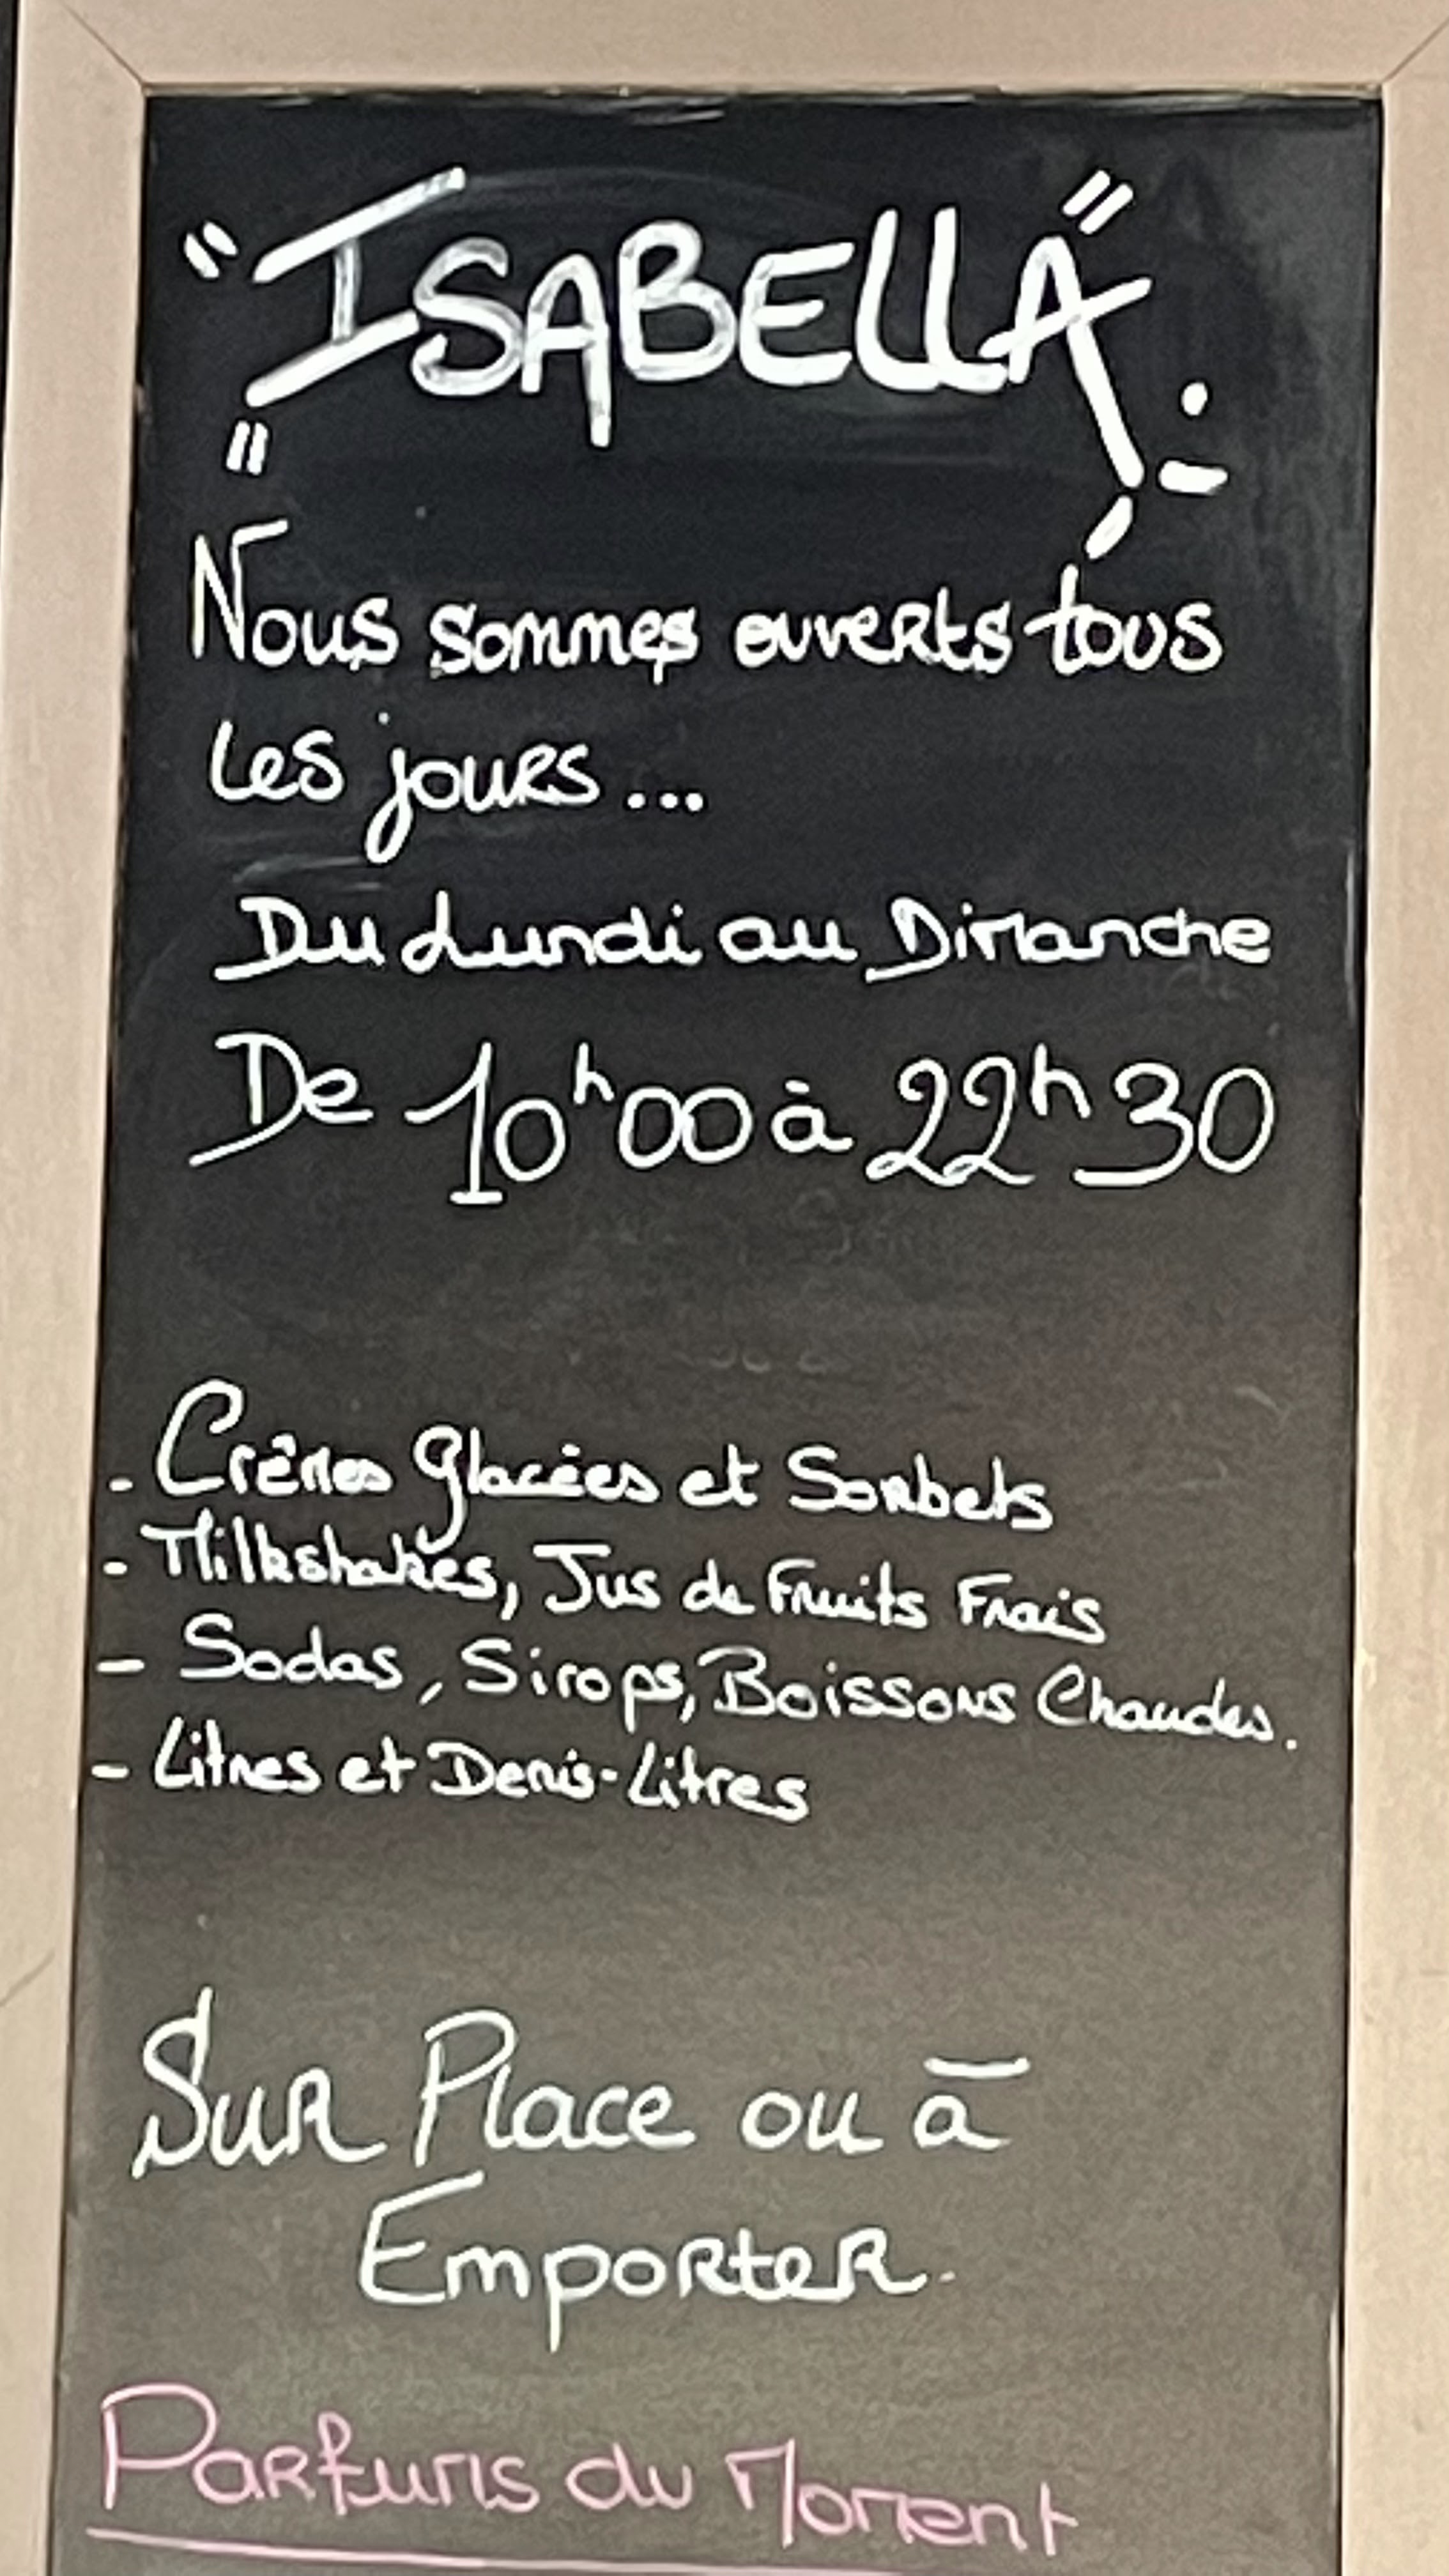 "ISABELLA"
Nous sommes ouverts tous
les jours...
Du Lundi au Dimanche
De 10h00 à 22h30
- Crèmes Glacées et Sorbets
- Milkshakes, Jus de Fruits Frais
- Sodas, Sirops, Boissons Chaudes.
- Litres et Demis-Litres
Sur Place ou à
Emporter.
Parfums du Moment